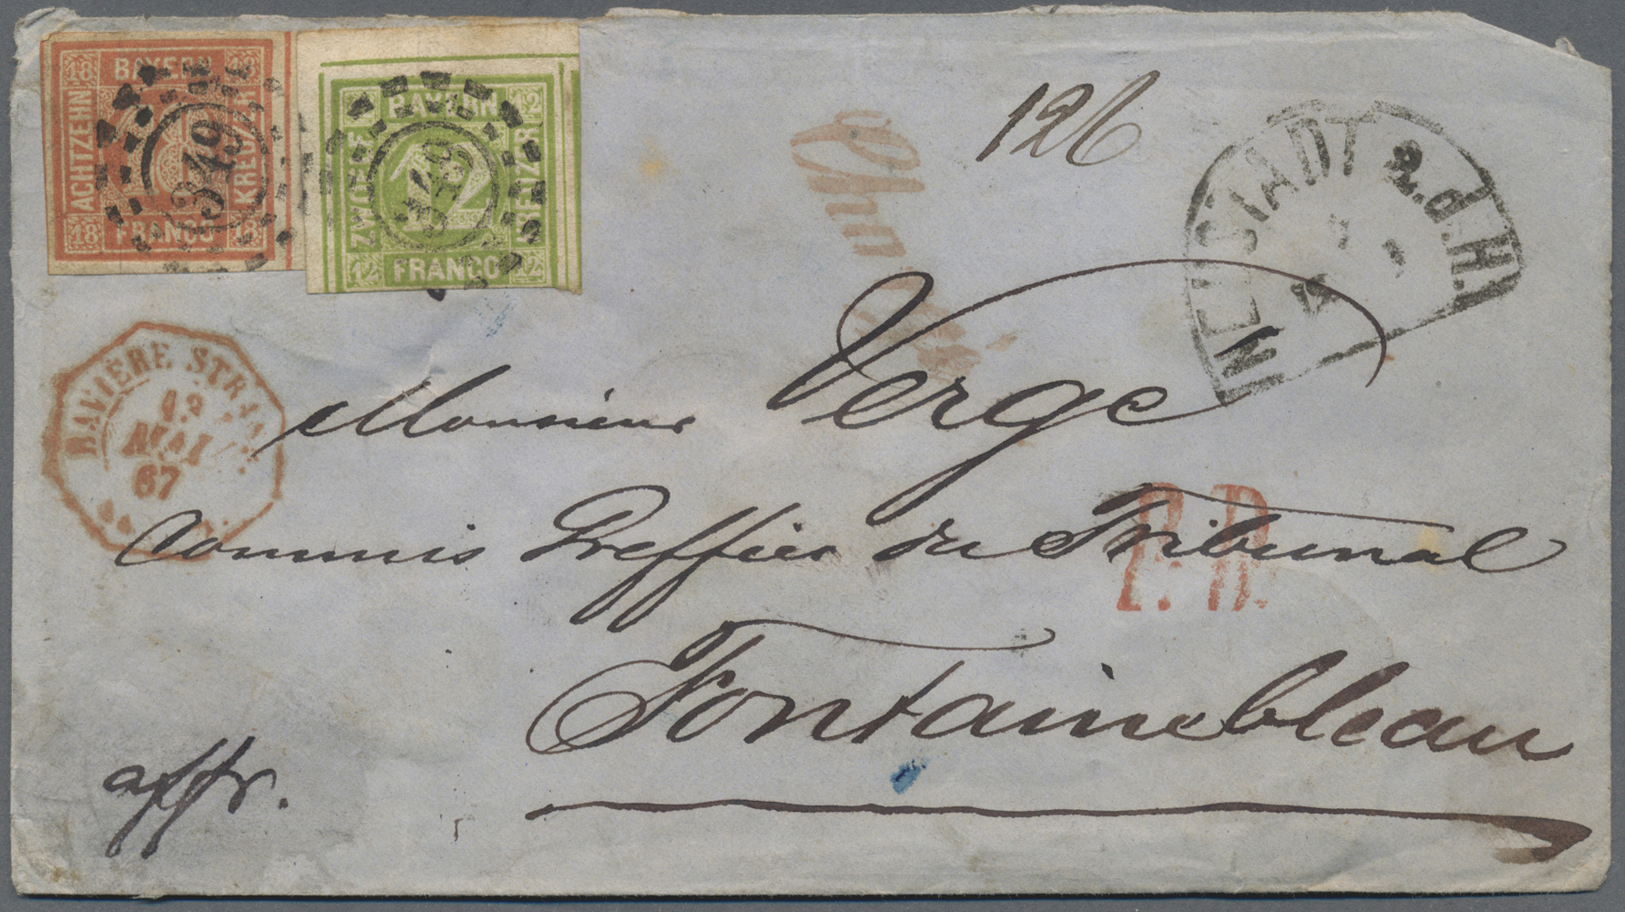 18 BAYERN 18
ACHTZEHN
KREUZER
18 FRANCO 18
349
BAYERN 12
ZWÖLF
KREUZER
12
12 FRANCO 12
349
126
NEUSTADT a.d.H.
BAVIÈRE STRASB.
12
MAI
67
Monsieur Verge
Commis Greffier du Tribunal
P.D.
P.D.
Fontainebleau
affr.